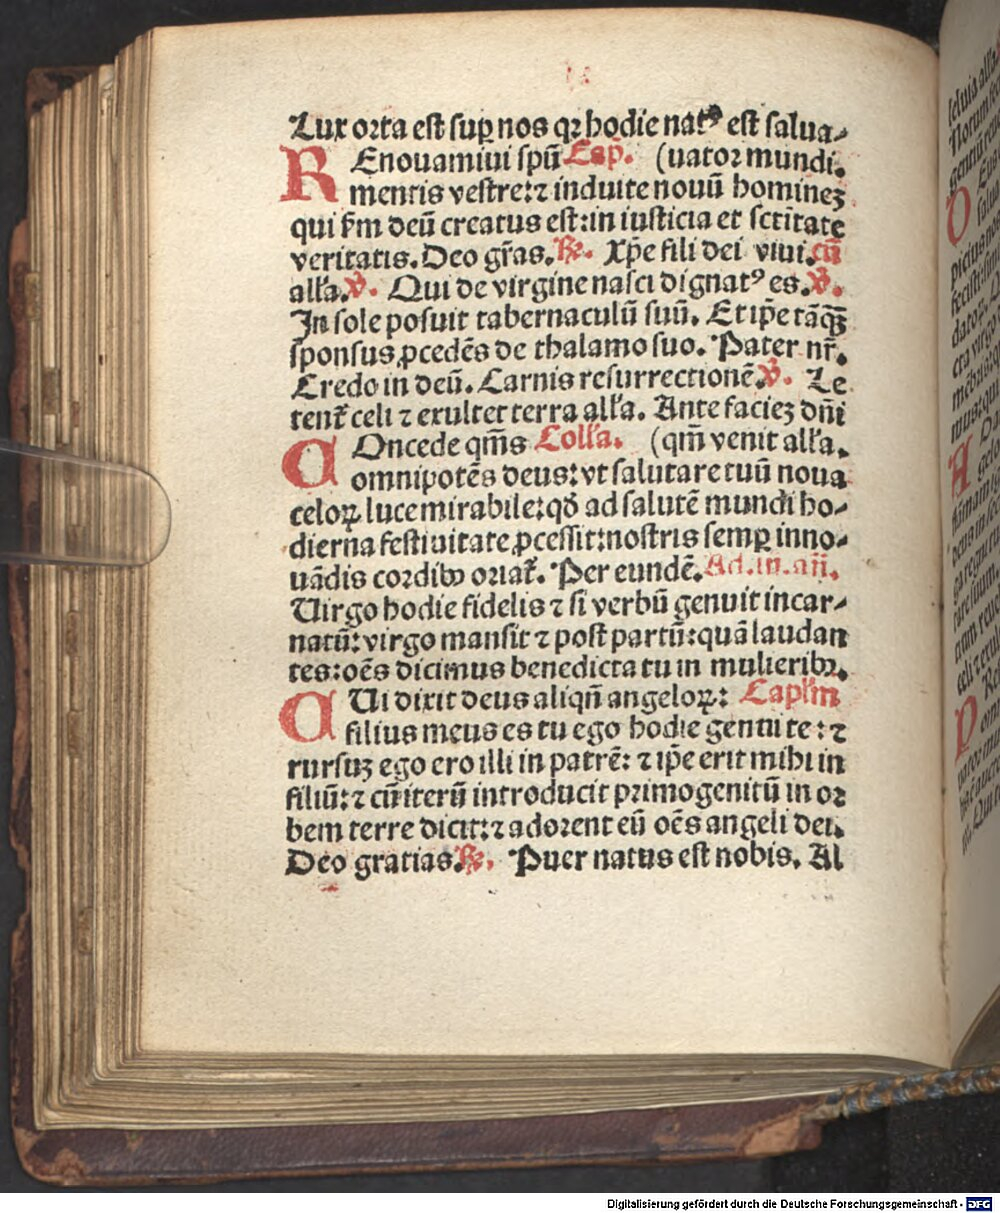 Lux orta est suꝑ nos qꝛ hodie natꝰ est salua-
REnouamiui spū Cap. (uator mundi.
mentis vestre: ⁊ induite nouū homineꝫ
qui ẜm deū creatus est: in iusticia et sctītate
veritatis. Deo gr̄as. ℞. Xp̄e fili dei viui. cū
alła. ℣. Qui de virgine nasci dignatꝰ es. ℣.
In sole posuit tabernaculū suū. Et ip̄e tāqꝫ
sponsus ꝓcedēs de thalamo suo. Pater nr̄.
Credo in deū. Carnis resurrectionē. ℣. Le
tent᷑ celi ⁊ exultet terra alła. Ante facieꝫ dn̄i
COncede qm̄s Colła. (qm̄ venit alła.
omnipotēs deus: vt salutare tuū noua
celoꝝ luce mirabile: qđ ad salutē mundi ho-
dierna festiuitate ꝓcessit: nostris semꝑ inno-
uādis cordibꝰ oriat᷑. Per eundē. Ad. in. an̄.
Uirgo hodie fidelis ⁊ si verbū genuit incar-
natū: virgo mansit ⁊ post partū: quā laudan
tes: oēs dicimus benedicta tu in mulieribꝫ.
CUi dixit deus aliqn̄ angeloꝝ: Capłm
filius meus es tu ego hodie genui te: ⁊
rursuꝫ ego ero illi in patrē: ⁊ ip̄e erit mihi in
filiū: ⁊ cū iterū introducit primogenitū in or
bem terre dicit: ⁊ adorent eū oēs angeli dei.
Deo gratias. ℞. Puer natus est nobis. Al
Digitalisierung gefördert durch die Deutsche Forschungsgemeinschaft - DFG